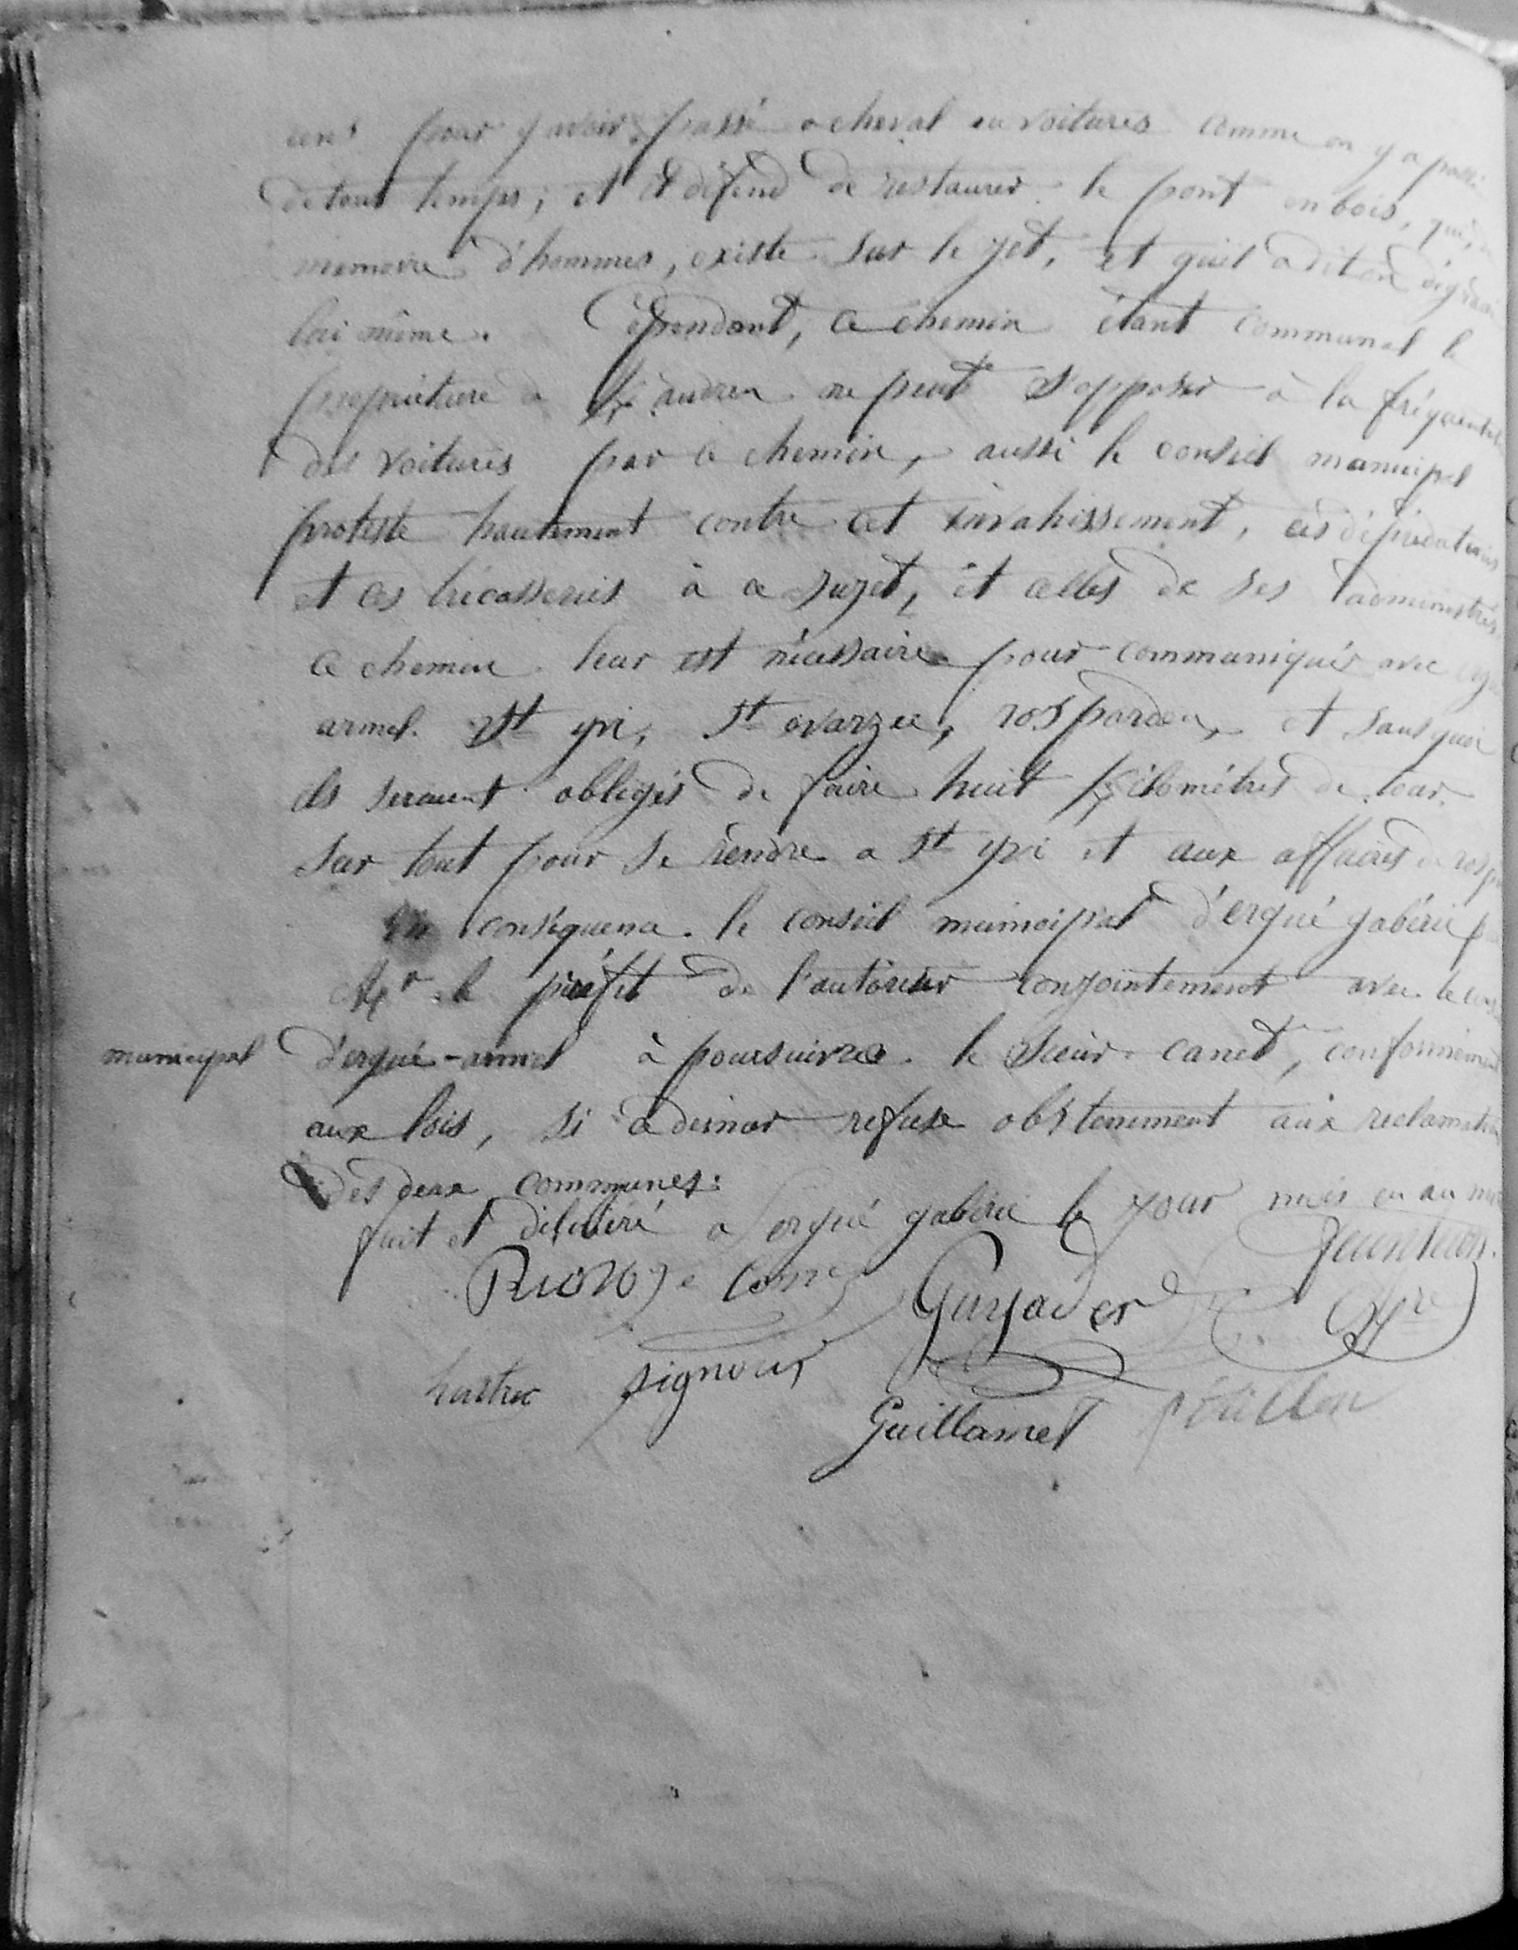 uns pour y avoir passé a cheval ou voitures comme on y a passé
de tout temps; et il défend de restaurer le pont en bois, qui, de
memoire d'hommes, existe sur le jet, et qu'il a dit-on dégradé
lui même. Cépendant, ce chemin étant communal le
propriétaire de Kandren ne peut s'opposer à la fréquentat
des voitures par ce chemin, aussi le conseil municipal
proteste hautement contre cet invahissement, ces déprédations
et ces tricasseries à ce sujet, et celles de ses administrés
ce chemin leur est nécessaire pour communiquer avec ergué
armel. St yvi, St evarzec, rosporden, et sans quoi
ils seraient obligés de faire huit Kilométres de tour
sur tout pour se rendre a St yvi et aux affaires de rosp
En conséquence le conseil municipal d'ergué gabéric p
Mr le préfet de l'autoriser conjointement avec le cons
municipal d'ergué-armel à poursuivre le sieur canet, conformément
aux lois, si ce dernier refuse obstenement aux reclamations
des deux communes:
fait et déliberé a ergué gabéric le jour mois en an
Riou je Corre Guyader Mre
hostiou signour
Guillamet